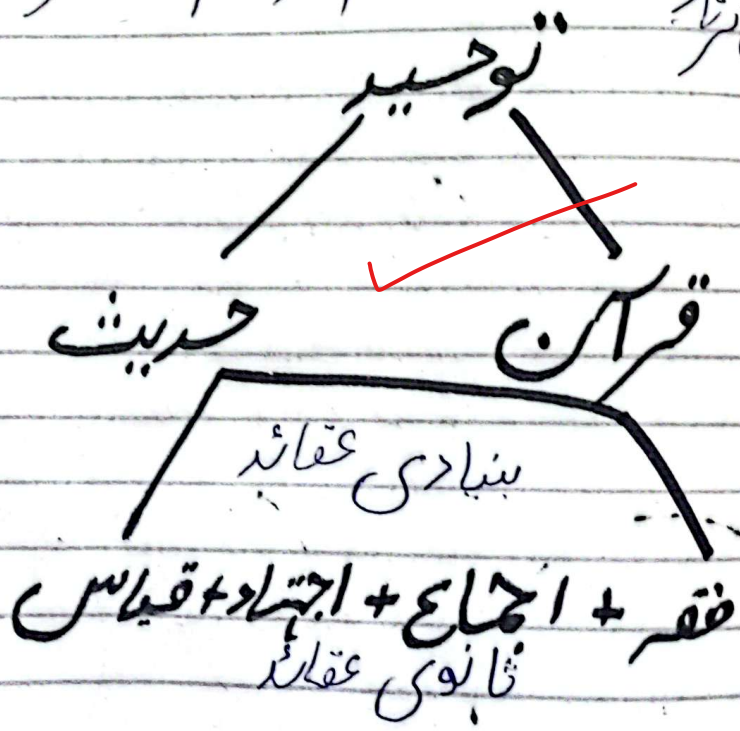 توحید
قرآن حدیث
بنیادی عقائد
فقہ + اجماع + اجتہاد + قیاس
ثانوی عقائد